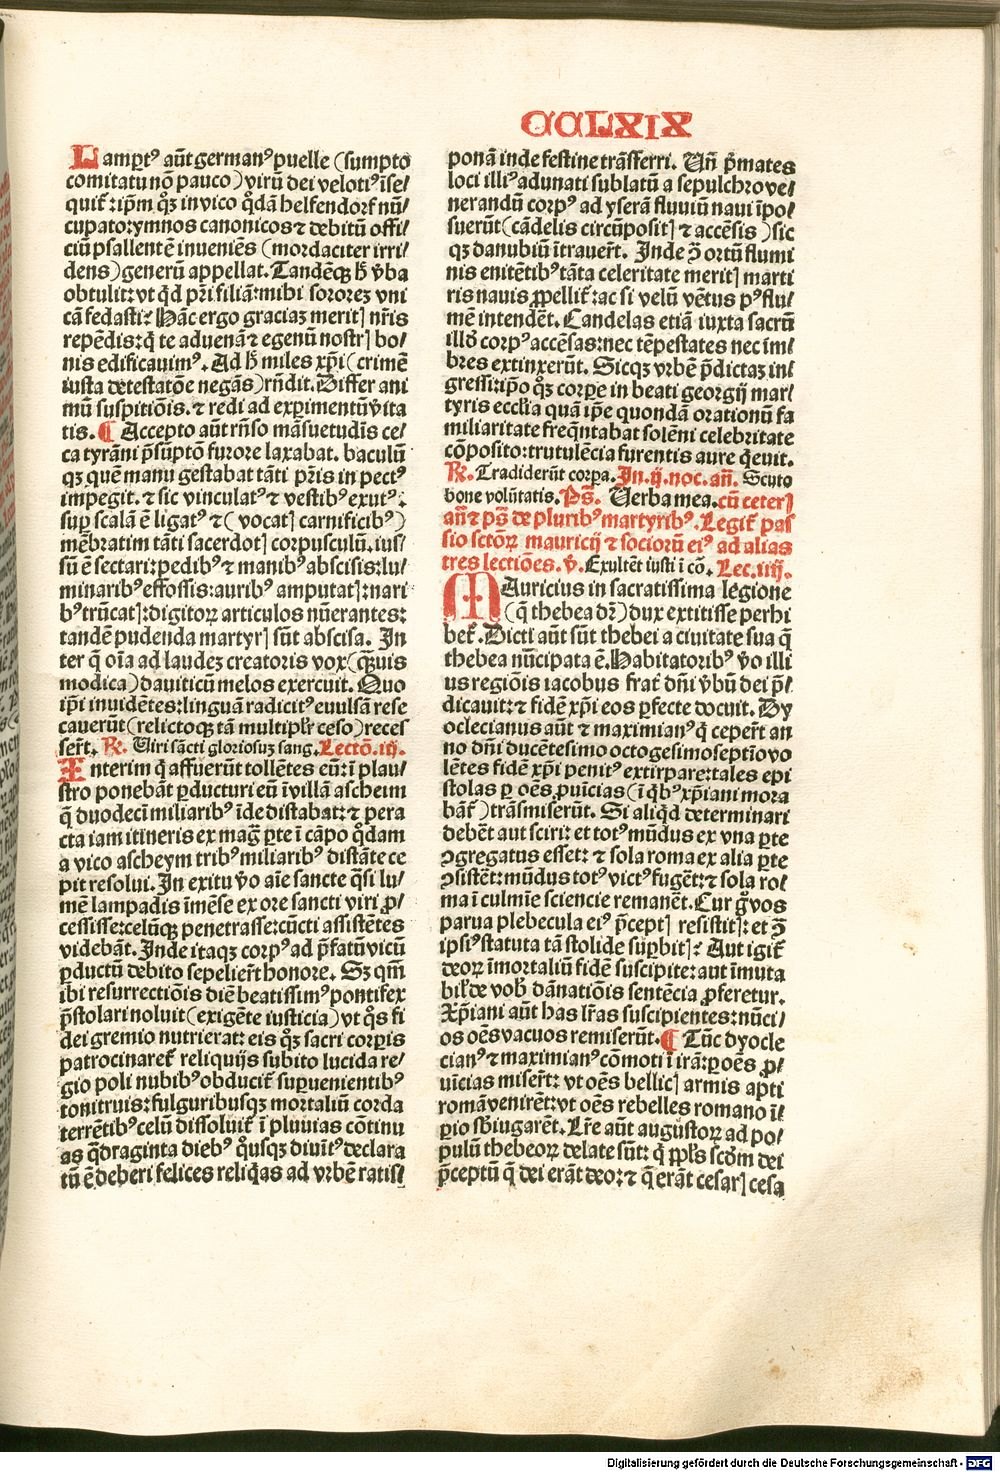 CCLXIX
Lamꝑtꝰ aūt germanꝰ puelle (sumpto
comitatu nō pauco) virū dei velotiꝰ īse/
quit᷑: ip̄m qꝫ in vico q̄dā helfendorf nū/
cupato: ymnos canonicos ⁊ debitū offi/
ciū psallentē inueniēs (mordaciter irri/
dens) generū appellat. Tandēqꝫ h̄ v̄ba
obtulit: vt q̄d p̄ri filiā: mihi sororeꝫ vni
cā fedasti: Hāc ergo graciaꝫ meritꝭ nr̄is
repēdis: q̄ te aduenā ⁊ egenū nostrꝭ bo/
nis edificauimꝰ. Ad h̄ miles xp̄i (crimē
iusta detestatōe negās) rn̄dit. Differ ani
mū suspitiōis. ⁊ redi ad experimentū v̄ita
tis. ¶ Accepto aūt rn̄so māsuetudīs ce/
ca tyrāni p̄sūptō furore laxabat. baculū
qꝫ quē manu gestabat tāti pr̄is in pectꝰ
impegit. ⁊ sic vinculatꝰ ⁊ vestibꝰ exutꝰ:
suꝑ scalā ē ligatꝰ ⁊ (vocatꝭ carnificibꝰ)
mēbratim tāti sacerdotꝭ corpusculū. ius/
sū ē sectari: pedibꝰ ⁊ manibꝰ abscisis: lu/
minaribꝰ effossis: auribꝰ amputatꝭ: nari
bꝰ trūcatꝭ: digitoꝝ articulos nūerantes:
tandē pudenda martyrꝭ sūt abscisa. In
ter q̄ oīa ad laudeꝫ creatoris vox (q̄uis
modica) dauiticū melos exercuit. Quo
ip̄i inuidētes: linguā radicitꝰ euulsā rese
cauerūt (relictoqꝫ tā multipl̓r ceso) reces
ser̄t. ℞. Viri sācti gloriosuꝫ sang. Lectō. iij.
Interim q̄ affuerūt tollētes eū: ī plau/
stro ponebāt ꝑducturi eū ī villā ascheim
q̄ duodecī miliaribꝰ īde distabat: ⁊ pera
cta iam itineris ex mag᷑ ꝑte ī cāpo q̄dam
a vico ascheym tribꝰ miliaribꝰ distāte ce
pit resolui. In exitu v̄o aīe sancte q̄si lu/
mē lampadis īmēse ex ore sancti viri ꝓ/
cessisse: celūqꝫ penetrasse: cūcti assistētes
videbāt. Inde itaqꝫ corpꝰ ad p̄fatū vicū
ꝑductū debito sepelier̄t honore. Sꝫ qm̄
ibi resurrectiōis diē beatissimꝰ pontifex
p̄stolari noluit (exigēte iusticia) vt q̄s fi
dei gremio nutrierat: eis qꝫ sacri corꝑis
patrocinaret᷑ reliquijs subito lucida re/
gio poli nubibꝰ obducit᷑ suꝑuenientibꝰ
tonitruis: fulguribusqꝫ mortaliū corda
terrētibꝰ celū dissoluit᷑ ī pluuias cōtinu
as q̄draginta diebꝰ q̊usqꝫ diuītꝰ declara
tū ē deberi felices reliq̄as ad vrbē ratis/
ponā inde festine trāsferri. Vn̄ p̄mates
loci illiꝰ adunati sublatū a sepulchro ve/
nerandū corpꝰ ad yserā fluuiū naui īpo/
suerūt (cādelis circūpositꝭ ⁊ accēsis) sic
qꝫ danubiū ītrauer̄t. Inde ꝯ̄ ortū flumi
nis enitētibꝰ tāta celeritate meritꝭ marti
ris nauis ꝓpellit᷑: ac si velū vētus pꝰ flu/
mē intendēt. Candelas etiā iuxta sacrū
illd̓ corpꝰ accēsas: nec tēpestates nec im/
bres extinxerūt. Sicqꝫ vrbē p̄dictaꝫ in/
gressi: ip̄o qꝫ corꝑe in beati georgij mar/
tyris ecclīa quā ip̄e quondā orationū fa
miliaritate freq̄ntabat solēni celebritate
cōposito: trutulēcia furentis aure q̄euit.
℞. Tradiderūt corpa. In .ij. noc. an̄. Scuto
bone volūtatis. Ps̄. Verba mea. cū ceterꝭ
an̄ ⁊ ps̄ de pluribꝰ martyribꝰ. Legit᷑ pas/
sio sctōꝝ mauricij ⁊ socioꝝ eiꝰ ad alias
tres lectiōes. v̄. Exultēt iusti ī cō. Lec. iiij.
MAuricius in sacratissima legione
(q̄ thebea dr̄) dux extitisse perhi
bet᷑. Dicti aūt sūt thebei a ciuitate sua q̄
thebea nūcipata ē. Habitatoribꝰ v̄o illi
us regiōis iacobus frat᷑ dn̄i v̄bū dei p̄/
dicauit: ⁊ fidē xp̄i eos ꝑfecte docuit. Dy
oclecianus aūt ⁊ maximianꝰ q̄ ceper̄t an
no dn̄i ducētesimo octogesimoseptīo vo
lētes fidē xp̄i penitꝰ extirpare: tales epi
stolas ꝑ oēs ꝓuīcias (ī q̄bꝰ xp̄iani mora
bāt᷑) trāsmiserūt. Si aliq̄d determinari
debēt aut sciri: et totꝰ mūdus ex vna ꝑte
ꝯgregatus esset: ⁊ sola roma ex alia ꝑte
ꝯsistēt: mūdus totꝰ victꝰ fugēt: ⁊ sola ro/
ma ī culmīe sciencie remanēt. Cur g̊ vos
parua plebecula eiꝰ p̄ceptꝭ resistitꝭ: et ꝯ̄
ipsiꝰ statuta tā stolide suꝑbitꝭ: Aut igit᷑
deoꝝ īmortaliū fidē suscipite: aut īmuta
bil̓ de vob̓ dānatiōis sentēcia ꝓferetur.
Xp̄iani aūt has lr̄as suscipientes: nūci/
os oēs vacuos remiserūt. ¶ Tūc dyocle
cianꝰ ⁊ maximianꝰ cōmoti ī irā: ꝑ oēs ꝓ/
uīcias miser̄t: vt oēs bellicꝭ armis apti
romā venirēt: vt oēs rebelles romano ī/
ꝑio sb̓iugarēt. Lr̄e aūt augustoꝝ ad po/
pulū thebeoꝝ delate sūt: q̄ ppl̓s scd̓m dei
p̄ceptū q̄ dei erāt deo: ⁊ q̄ erāt cesarꝭ cesa
Digitalisierung gefördert durch die Deutsche Forschungsgemeinschaft - DFG